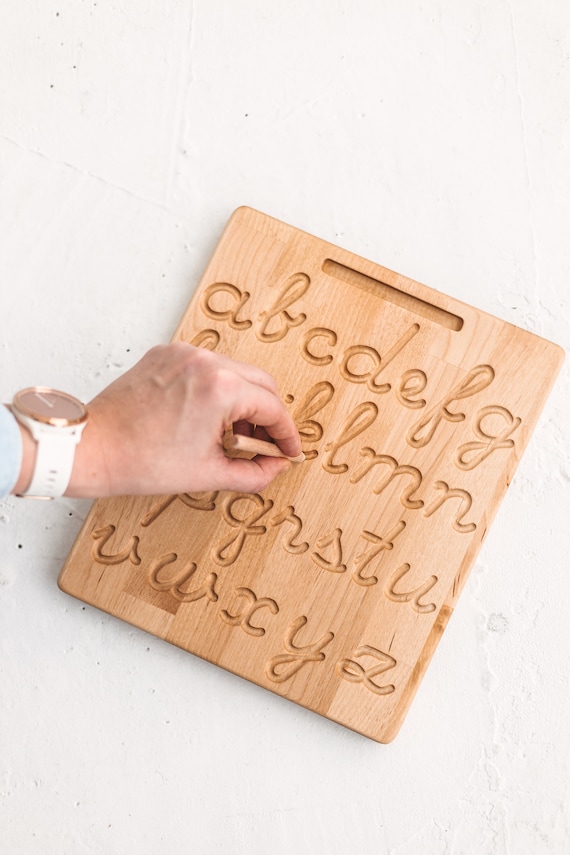 abcdefg
klmn
pqrstu
vwxyz